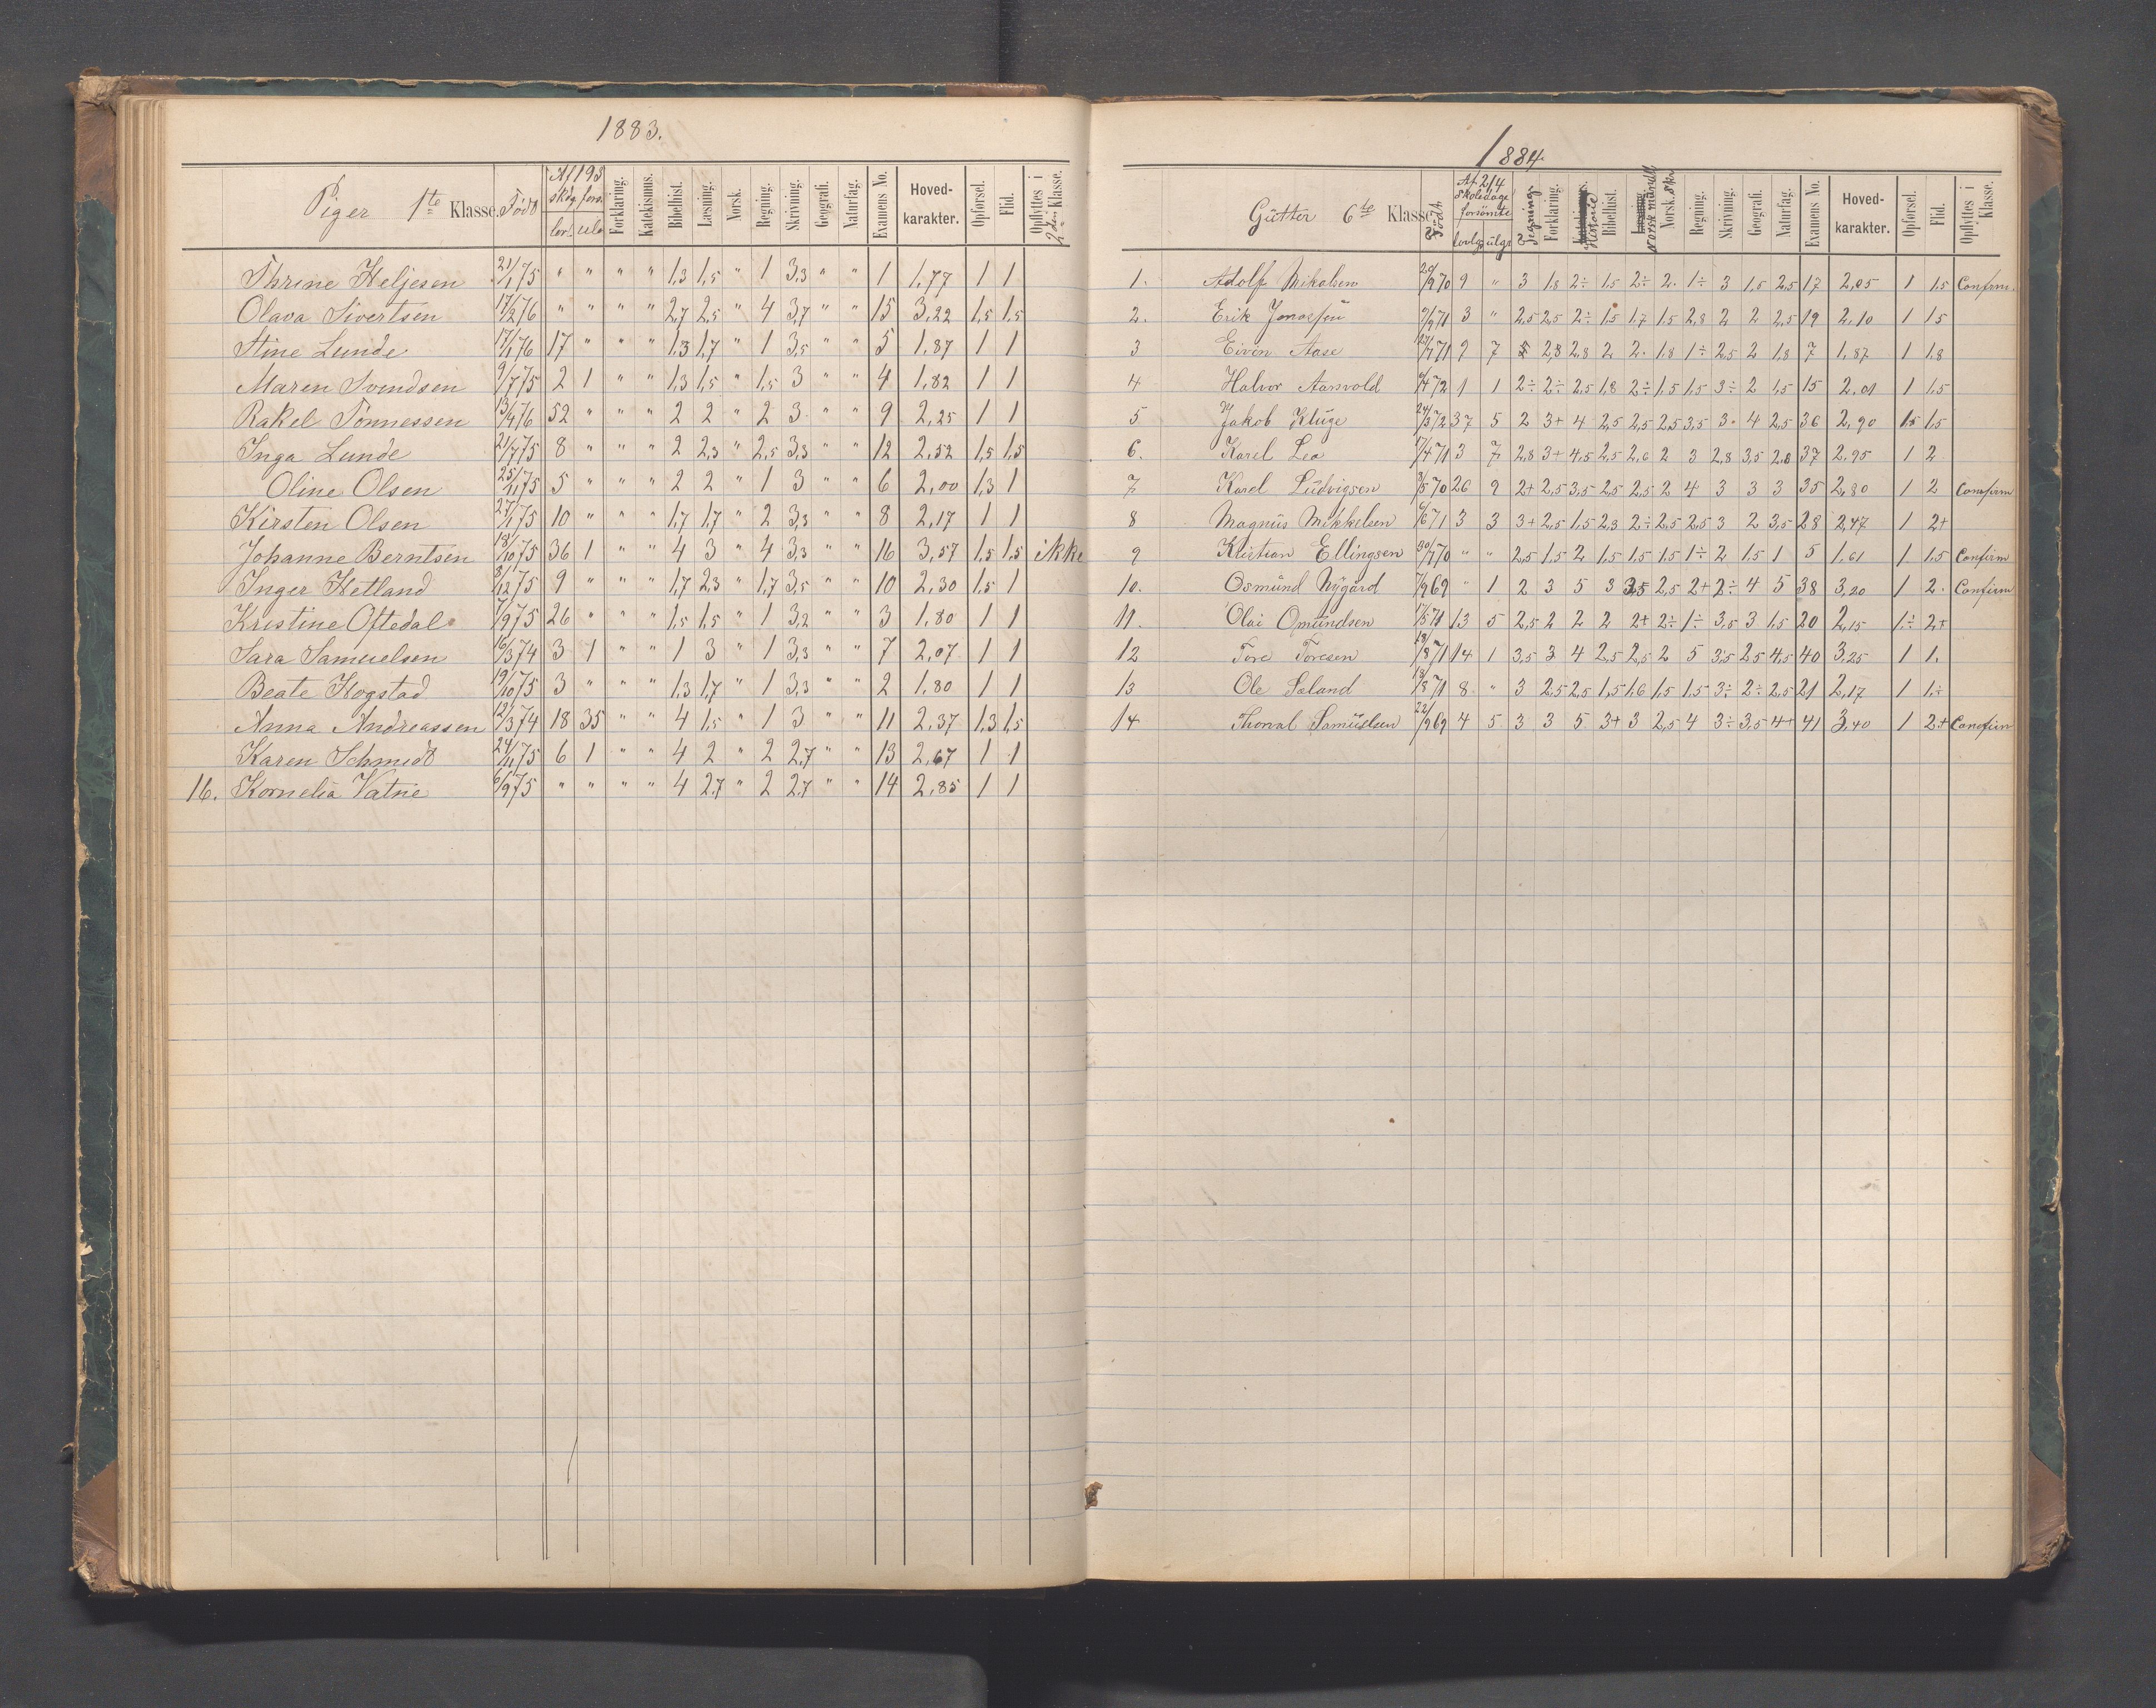 1883.
Piger 1te Klasse. Född Af 193 skdg fors. lov. ulo Forklaring. Katekismus. Bibelhist. Læsning. Norsk. Regning. Skrivning. Geografi. Naturfag. Examens No. Hoved-karakter. Opførsel. Flid. Opflyttes i 2den Klasse.
Thrine Heljesen 21/1 75 " " " " 1,3 1,5 " 1 3,3 " " 1 1,77 1 1
Olava Sivertsen 17/2 76 " " " " 2,7 2,5 " 4 3,7 " " 15 3,22 1,5 1,5
Stine Lunde 17/1 76 17 " " " 1,3 1,7 " 1 3,5 " " 5 1,87 1 1
Maren Svendsen 9/7 75 2 1 " " 1,3 1,5 " 1,5 3 " " 4 1,82 1 1
Rakel Tönnessen 13/4 76 52 " " " 2 2 " 2 3 " " 9 2,25 1 1
Inga Lunde 21/7 75 8 " " " 2 2,3 " 2,5 3,3 " " 12 2,52 1,5 1,5
Oline Olsen 25/11 75 5 " " " 2 2 " 1 3 " " 6 2,00 1,3 1
Kirsten Olsen 27/1 75 10 " " " 1,7 1,7 " 2 3,3 " " 8 2,17 1 1
Johanne Berntsen 18/10 75 36 1 " " 4 3 " 4 3,3 " " 16 3,57 1,5 1,5 ikke
Inger Hetland 8/12 75 9 " " " 1,7 2,3 " 1,7 3,5 " " 10 2,30 1,5 1
Kristine Oftedal 7/9 75 26 " " " 1,5 1,5 " 1 3,2 " " 3 1,80 1 1
Sara Samuelsen 16/3 74 3 1 " " 1 3 " 1 3,3 " " 7 2,07 1 1
Beate Hogstad 19/10 75 3 " " " 1,3 1,7 " 1 3,3 " " 2 1,80 1 1
Anna Andreassen 12/3 74 18 35 " " 4 1,5 " 1 3 " " 11 2,37 1,3 1,5
Karen Schmidt 24/11 75 6 1 " " 4 2 " 2 2,7 " " 13 2,67 1 1
16. Kornelia Vatne 6/9 75 " " " " 4 2,7 " 2 2,7 " " 14 2,85 1 1
1884
Gutter 6te Klasse Född Af 214 Skoledage forsømte lovlg. ulgr Tegning Forklaring. Historie Bibelhist. Norsk mundtl Norsk. skr Regning. Skrivning. Geografi. Naturfag. Examens No. Hoved-karakter. Opførsel. Flid. Opflyttes i Klasse.
1. Adolf Mikalsen 20/9 70 9 " 3 1,8 2÷ 1,5 2÷ 2. 1÷ 3 1,5 2,5 17 2,05 1 1,5 Confirm.
2. Erik Jonassen 9/9 71 3 " 2,5 2,5 2÷ 1,5 1,7 1,5 2,8 2 2 2,5 19 2,10 1 1,5
3 Eiven Aase 27/7 71 9 7 2,8 2,8 2 2. 1,8 1÷ 2,5 2 1,8 7 1,87 1 1,8
4 Halvor Aarsvold 9/4 72 1 1 2÷ 2÷ 2,5 1,8 2÷ 1,5 1,5 3÷ 2 1,5 15 2,01 1 1,5
5 Jakob Kluge 24/3 72 37 5 2 3+ 4 2,5 2,5 2,5 3,5 3. 4 2,5 36 2,90 1,5 1,5
6. Karel Lea 17/4 71 3 7 2,8 3+ 4,5 2,5 2,6 2 3 2,8 3,5 2,8 37 2,95 1 2
7 Karel Ludvigsen 3/5 70 26 9 2+ 2,5 3,5 2,5 2,5 2 4 3 3 3 35 2,80 1 2 Confirm
8 Magnus Mikkelsen 6/6 71 3 3 3+ 2,5 1,5 2,3 2÷ 2,5 2,5 3 2 3,5 28 2,47 1 2+
9 Kristian Ellingsen 30/7 70 " " 2,5 1,5 2 1,5 1,5 1,5 1÷ 2 1,5 1 5 1,61 1. 1,5 Confirm
10. Osmund Nygård 7/9 69 " 1 2 3 5 3 3,5 2,5 2+ 2÷ 4 5 38 3,20 1 2. Confirm
11. Olai Omundsen 17/5 71 13 5 2,5 2 2 2 2+ 2÷ 1÷ 3,5 3 1,5 20 2,15 1÷ 2+
12 Tore Toresen 18/8 71 14 1 3,5 3 4 2,5 2,5 2 5 3,5 2,5 4,5 40 3,25 1 1.
13 Ole Søland 18/8 71 8 " 3 2,5 2,5 1,5 1,6 1,5 1,5 3÷ 2÷ 2,5 21 2,17 1 1÷
14 Thorval Samuelsen 22/9 69 4 5 3 3 5 3+ 3 2,5 4 3÷ 3,5 4+ 41 3,40 1 2+ Confirm